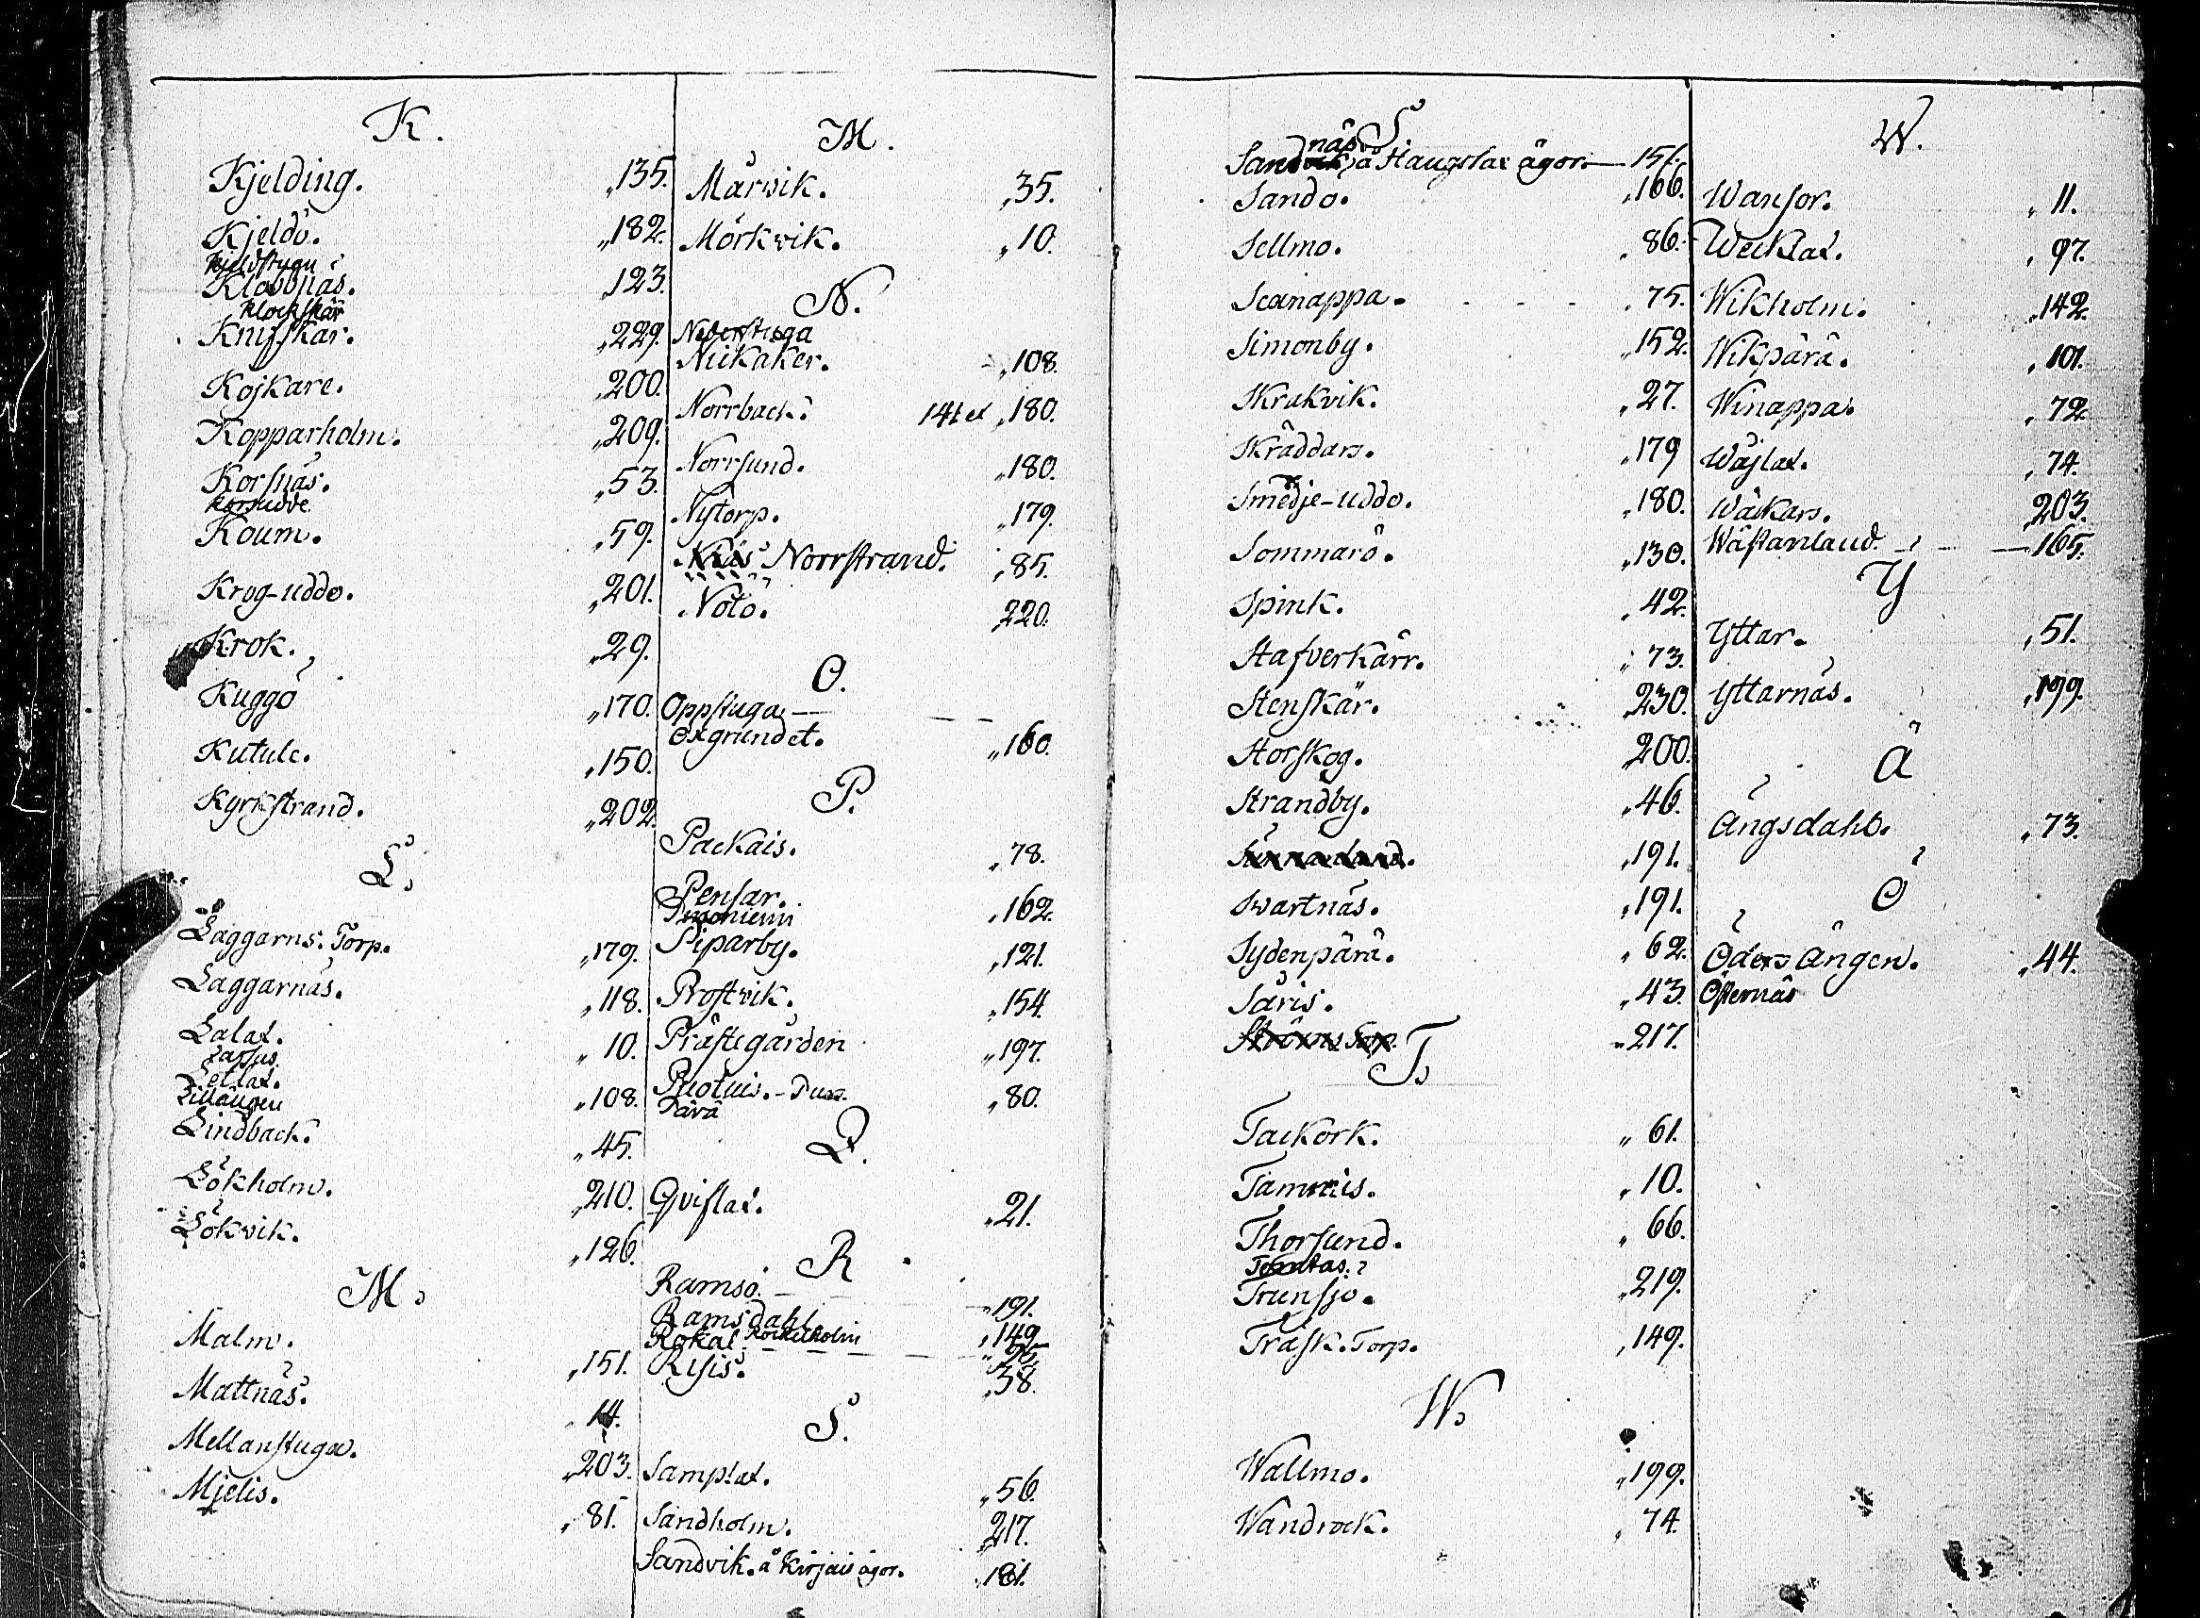 K.
Kjelding. „135.
Kjeldö. „182.
Kjeldstugu
Klobbnäs. „123.
Klockskär
Knifskär. „229.
Kojkare. „200.
Kopparholm. „209.
Korsnäs. „53.
Korsudde
Koum. „59.
Krog-udde. „201.
Krok. „29.
Kuggö „170.
Kutule. „150.
Kyrkstrand. „202.
L.
Laggarns. Torp. „179.
Laggarnäs. „118.
Lalax. „10.
Lassus
Letlax. „108.
Lillängen
Lindback. „45.
Lökholm. „210.
Lökvik. „126.
M.
Malm. „151.
Mattnäs. „14.
Mellanstuga. „203.
Mjelis. „81.
M.
Märvik. „35.
Mörkvik. „10.
N.
Nederstuga
Nickaker. „108.
Norrback. 141 et „180.
Norrsund. „180.
Nytorp. „179.
Norrstrand. „85.
Nötö. 220.
O.
Oppstuga
Oxgrundet. „160.
P.
Packais. „78.
Pensar. „162.
Piparby. „121.
Prostvik. „154.
Prästegården „197.
Puotuis. „80.
Pärä
Q.
Qvislax. „21.
R.
Ramsö „191.
Ramsdahl „149
Rokal Rockelholm
Risis. „38.
S.
Samplax. „56.
Sandholm. „217.
Sandvik. å Kirjais ägor. „181.
S
Sandnäs å Haugslax ägor. 151.
Sandö. „166.
Sellmo. „86.
Scanappa. „75.
Simonby. „152.
Skrakvik. „27.
Skräddars. „179
Smedje-udde. „180.
Sommarö. „130.
Spink. „42.
Stafverkärr. „73.
Stenskär. 230.
Storskog. 200.
Strandby. „46.
Sunnanland. „191.
Swartnäs. „191.
Sydenpärä. „62.
Säris. „43.
Ströms Torp. „217.
T.
Tackork. „61.
Tammis. „10.
Thorsund. „66.
Trunsjö. „219.
Träsk. Torp. „149.
W.
Wallmo. „199.
Wandrock. „74.
W.
Wansor. „11.
Wecklax. „97.
Wikholm. „142.
Wikpärä. „101.
Winappa. „72
Wäjlax. „74.
Wäkars. 203.
Wästanland. 165.
Y
Yttar. „51.
Yttarnäs. „199.
Ä
Ängsdahl. „73.
Ö
Öders Ängen. „44.
Östernäs